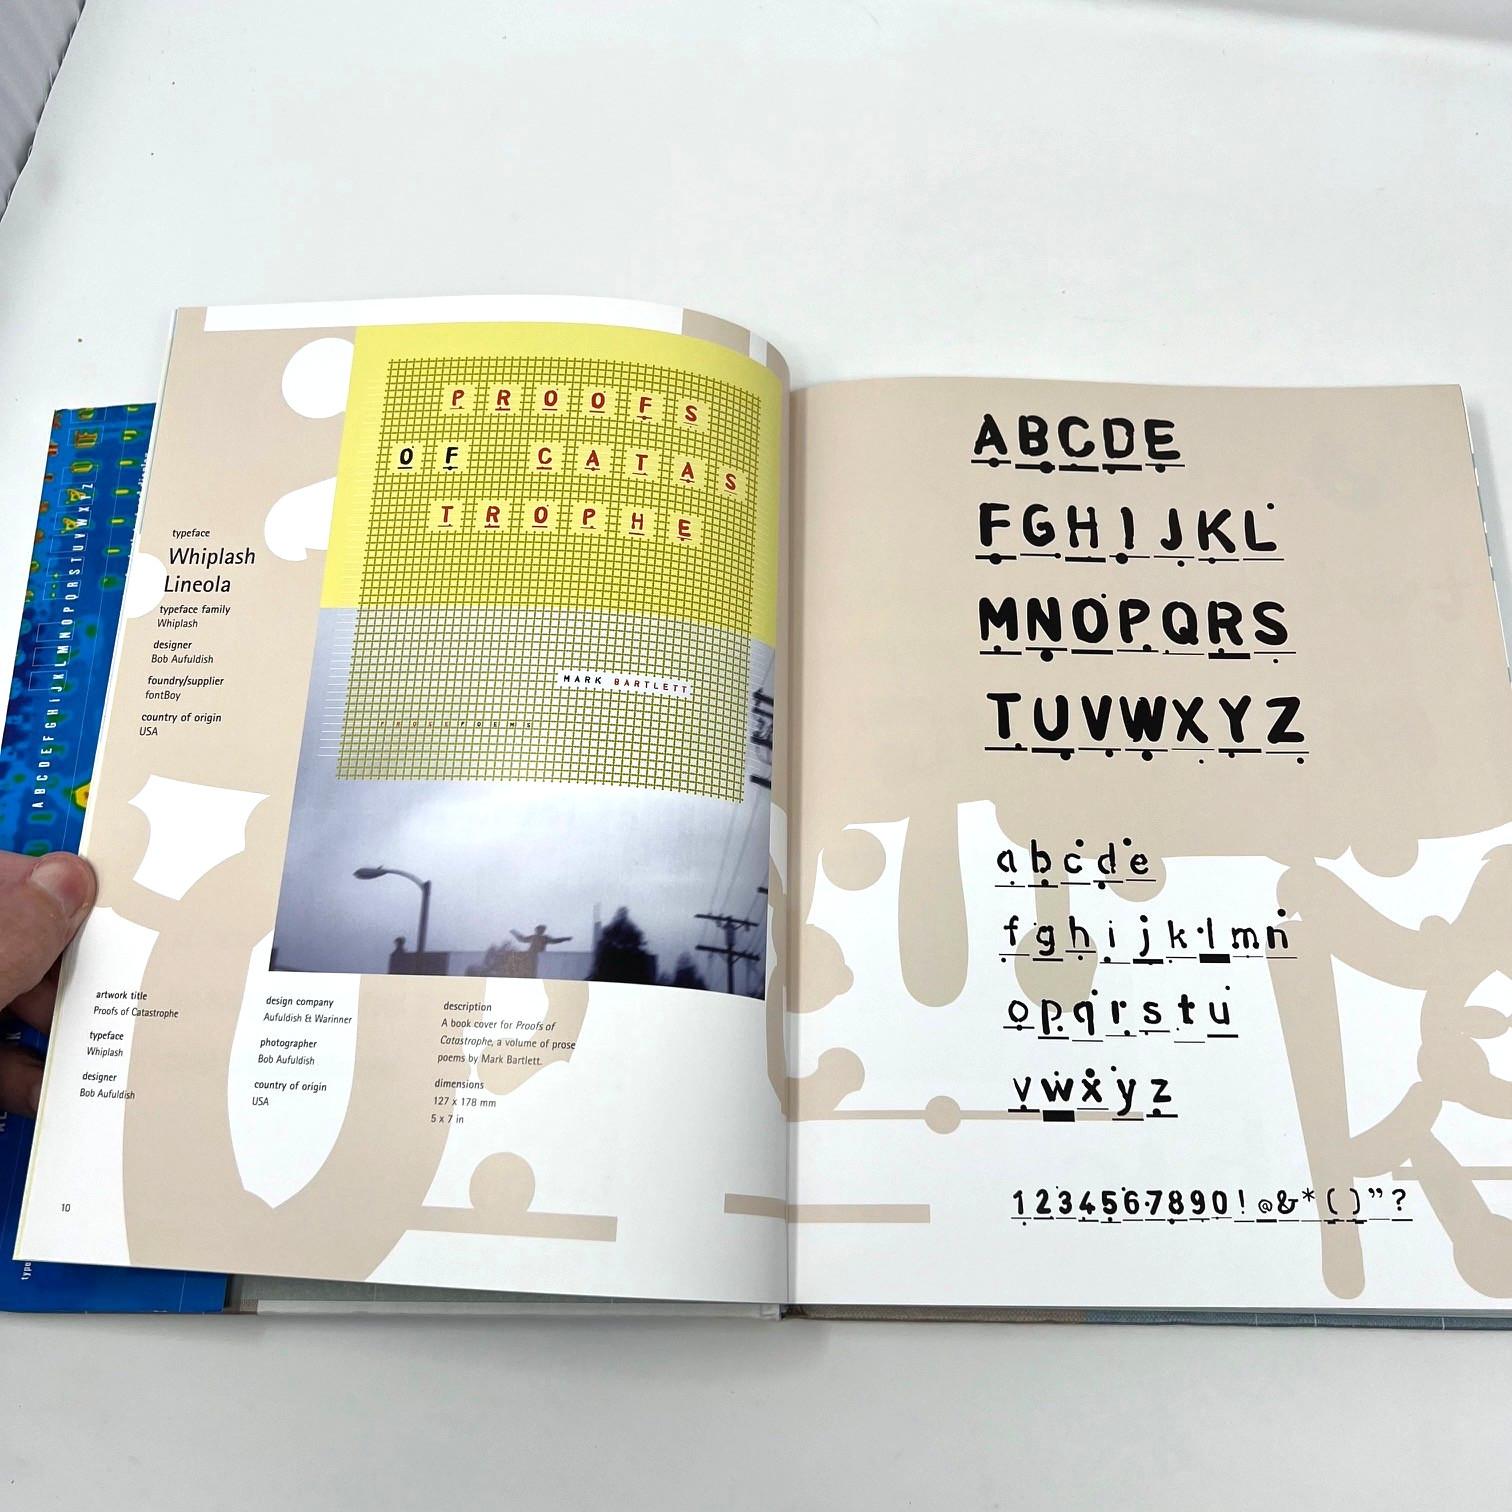 PROOFS
OF CATAS
TROPHE
MARK BARTLETT
PROSE POEMS
typeface
Whiplash
Lineola
typeface family
Whiplash
designer
Bob Aufuldish
foundry/supplier
fontBoy
country of origin
USA
artwork title
Proofs of Catastrophe
typeface
Whiplash
designer
Bob Aufuldish
design company
Aufuldish & Warinner
photographer
Bob Aufuldish
country of origin
USA
description
A book cover for Proofs of
Catastrophe, a volume of prose
poems by Mark Bartlett.
dimensions
127 x 178 mm
5 x 7 in
10
ABCDEFGHIJKLMNOPQRSTUVWXYZ
ABCDE
FGHIJKL
MNOPQRS
TUVWXYZ
abcde
fghijk·lmn
opqrstu
vwxyz
1234567890!@&*()”?